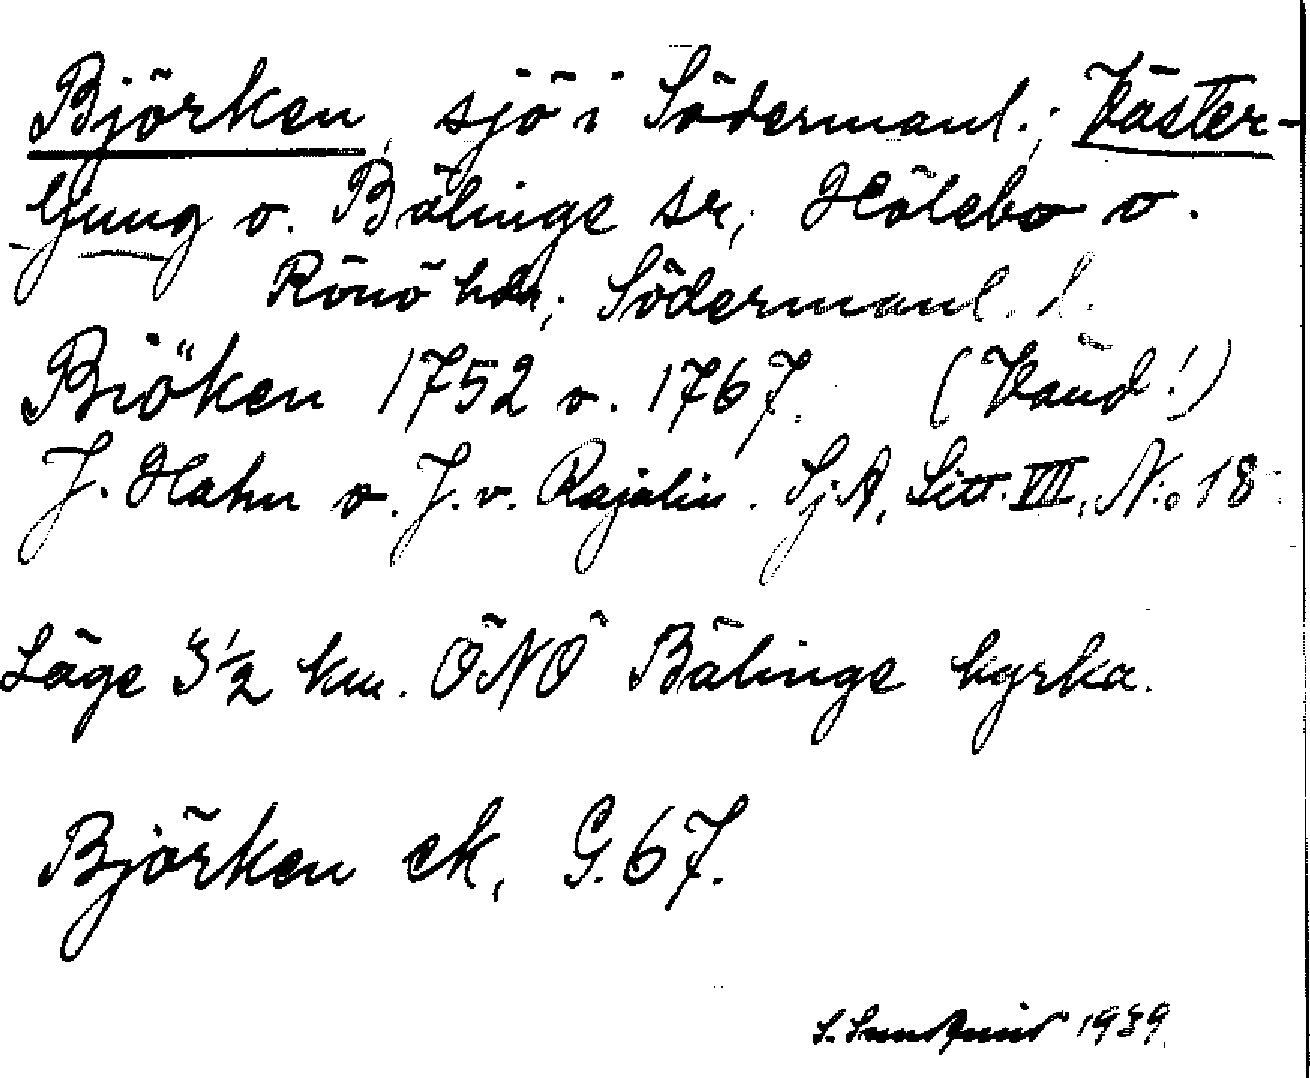 Björken, sjö i Södermanl.; Väster-
ljung o. Bälinge sr; Hölebo o.
Rönö hdr; Södermanl. l.
Biöken 1752 o. 1767. (Vänd!)
J. Hahn o. J. v. Rajalin. Sj.A, Litt. VIII, N:o 18.
Läge 3 1/2 km. ÖNÖ Bälinge kyrka.
Björken ek, G. 67.
S. Sundqvist 1939